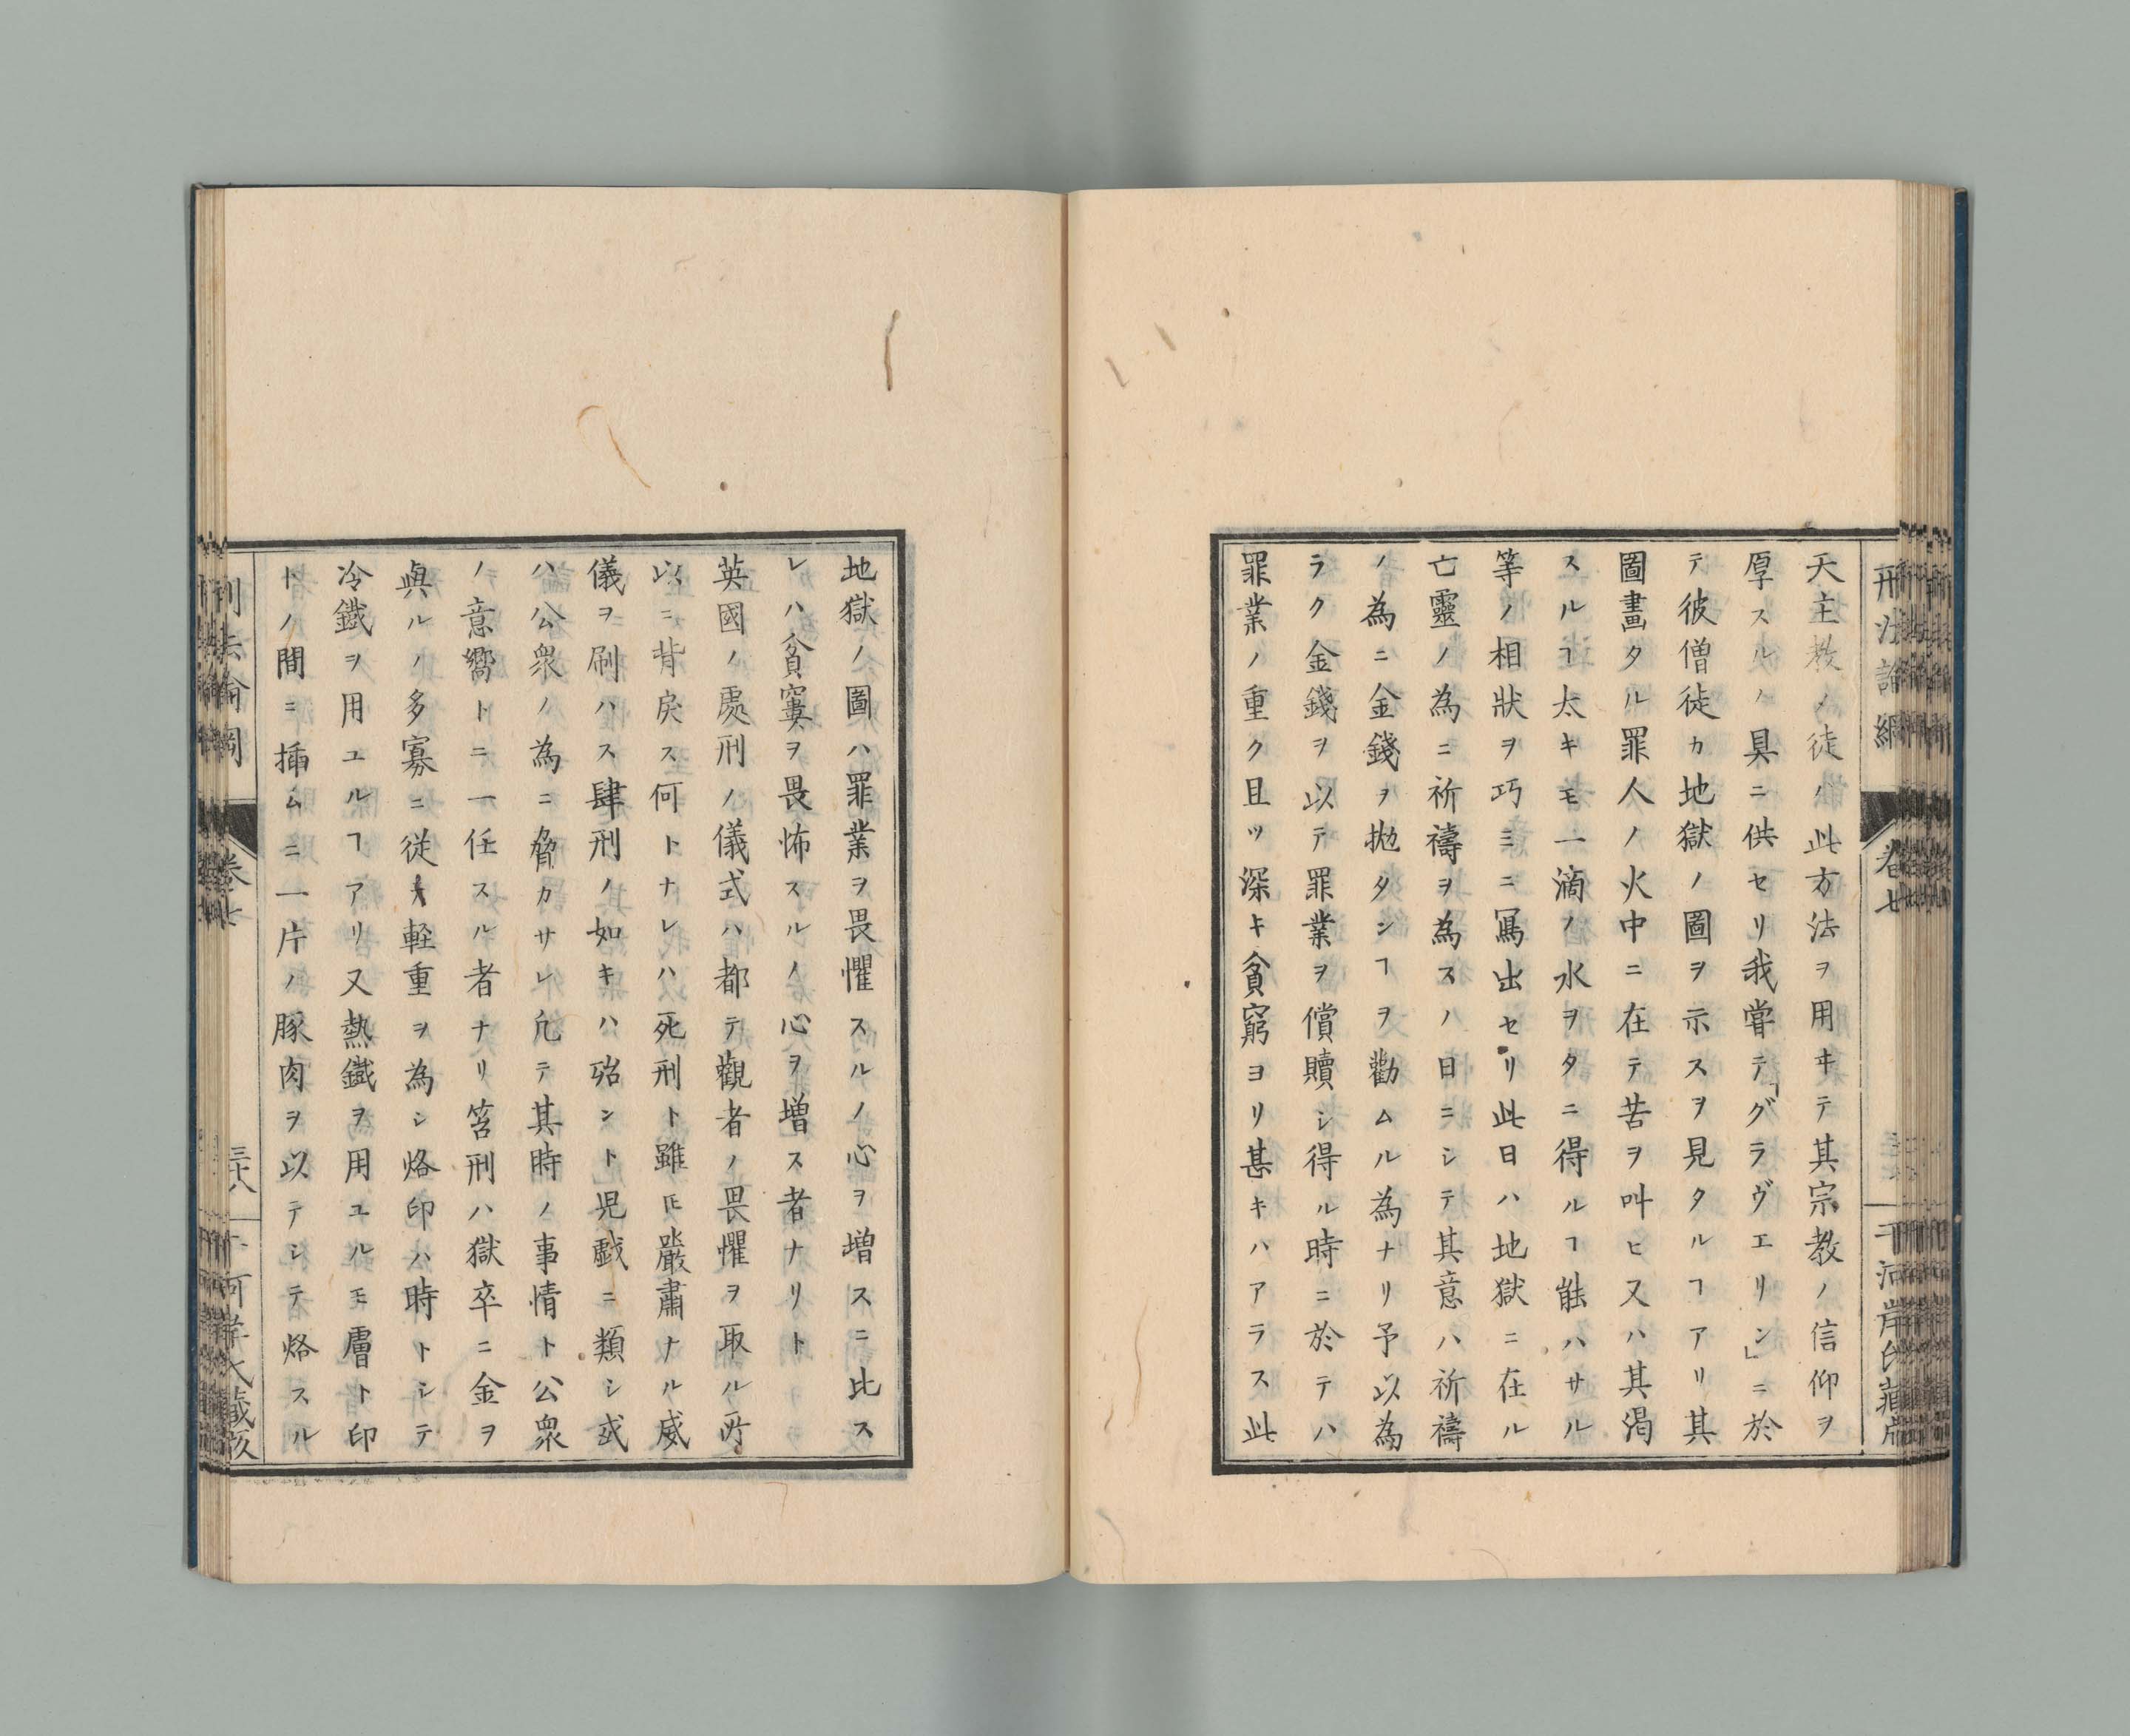 刑法論綱
卷七
三十七
千河岸氏藏版
天主教ノ徒ハ此方法ヲ用ヰテ其宗教ノ信仰ヲ
厚スルノ具ニ供セリ我嘗テ「グラヴエリン」ニ於
テ彼僧徒カ地獄ノ圖ヲ示スヲ見タルヿアリ其
圖畫タル罪人ノ火中ニ在テ苦ヲ叫ヒ又ハ其渇
スルヿ太キモ一滴ノ水ヲタニ得ルヿ能ハサル
等ノ相狀ヲ巧ミニ寫出セリ此日ハ地獄ニ在ル
亡靈ノ為ニ祈禱ヲ為スノ日ニシテ其意ハ祈禱
ノ為ニ金錢ヲ拋タンヿヲ勸ムル為ナリ予以為
ラク金錢ヲ以テ罪業ヲ償贖シ得ル時ニ於テハ
罪業ノ重ク且ツ深キ貧窮ヨリ甚キハアラス此
地獄ノ圖ハ罪業ヲ畏懼スルノ心ヲ增スニ比ス
レハ貧窶ヲ畏怖スルノ心ヲ增ス者ナリト
英國ノ處刑ノ儀式ハ都テ觀者ノ畏懼ヲ取ル所
以ニ背戾ス何トナレハ死刑ト雖𪜈嚴肅ナル威
儀ヲ刷ハス肆刑ノ如キハ殆ント児戯ニ類シ或
ハ公衆ノ為ニ脅カサレ凢テ其時ノ事情ト公衆
ノ意嚮トニ一任スル者ナリ笞刑ハ獄卒ニ金ヲ
與ルノ多寡ニ從テ輕重ヲ為シ烙印ハ時トシテ
冷鐵ヲ用ユルヿアリ又熱鐵ヲ用ユルモ膚ト印
トノ間ニ挿ムニ一片ノ豚肉ヲ以テシテ烙スル
刑法論綱
卷七
三十八
千河岸氏藏版